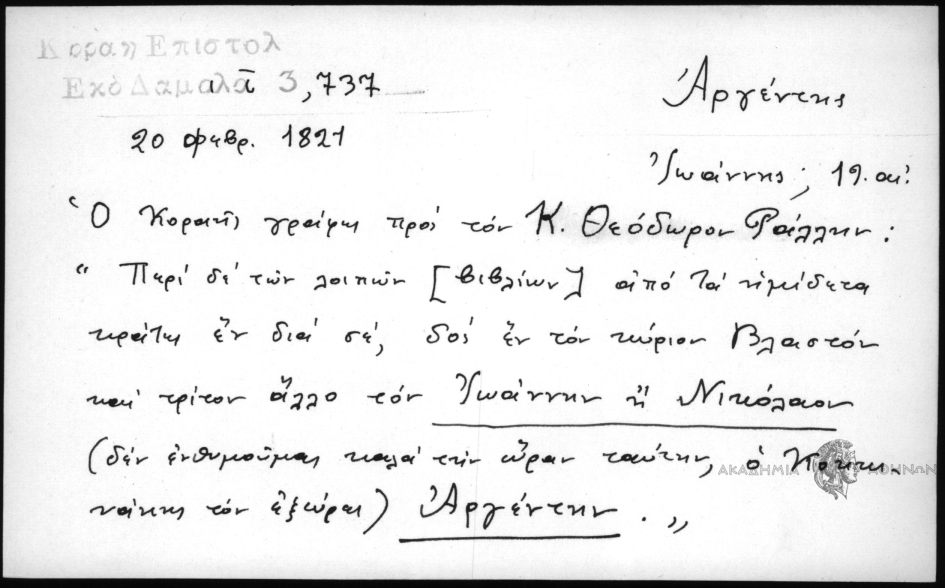 Κοραη Επιστολ
Εκδ Δαμαλα 3, 737
20 Φεβρ. 1821
Ἀργέντης
Ἰωάννης, 19. αἰ.
Ὁ Κοραῆς γράφει πρός τόν Κ. Θεόδωρον Ράλλην :
"Περί δέ τῶν λοιπῶν [βιβλίων] ἀπό τά ἡμίδετα
κράτει ἕν διά σέ, δός ἕν τόν κύριον Βλαστόν
καί τρίτον ἄλλο τόν Ἰωάννην ἤ Νικόλαον
(δέν ἐνθυμοῦμαι καλά τήν ὥραν ταύτην, ὁ Κοκκι-
νάκης τόν ἐξεύρει) Ἀργέντην . „
ΑΚΑΔΗΜΙΑ ΑΘΗΝΩΝ